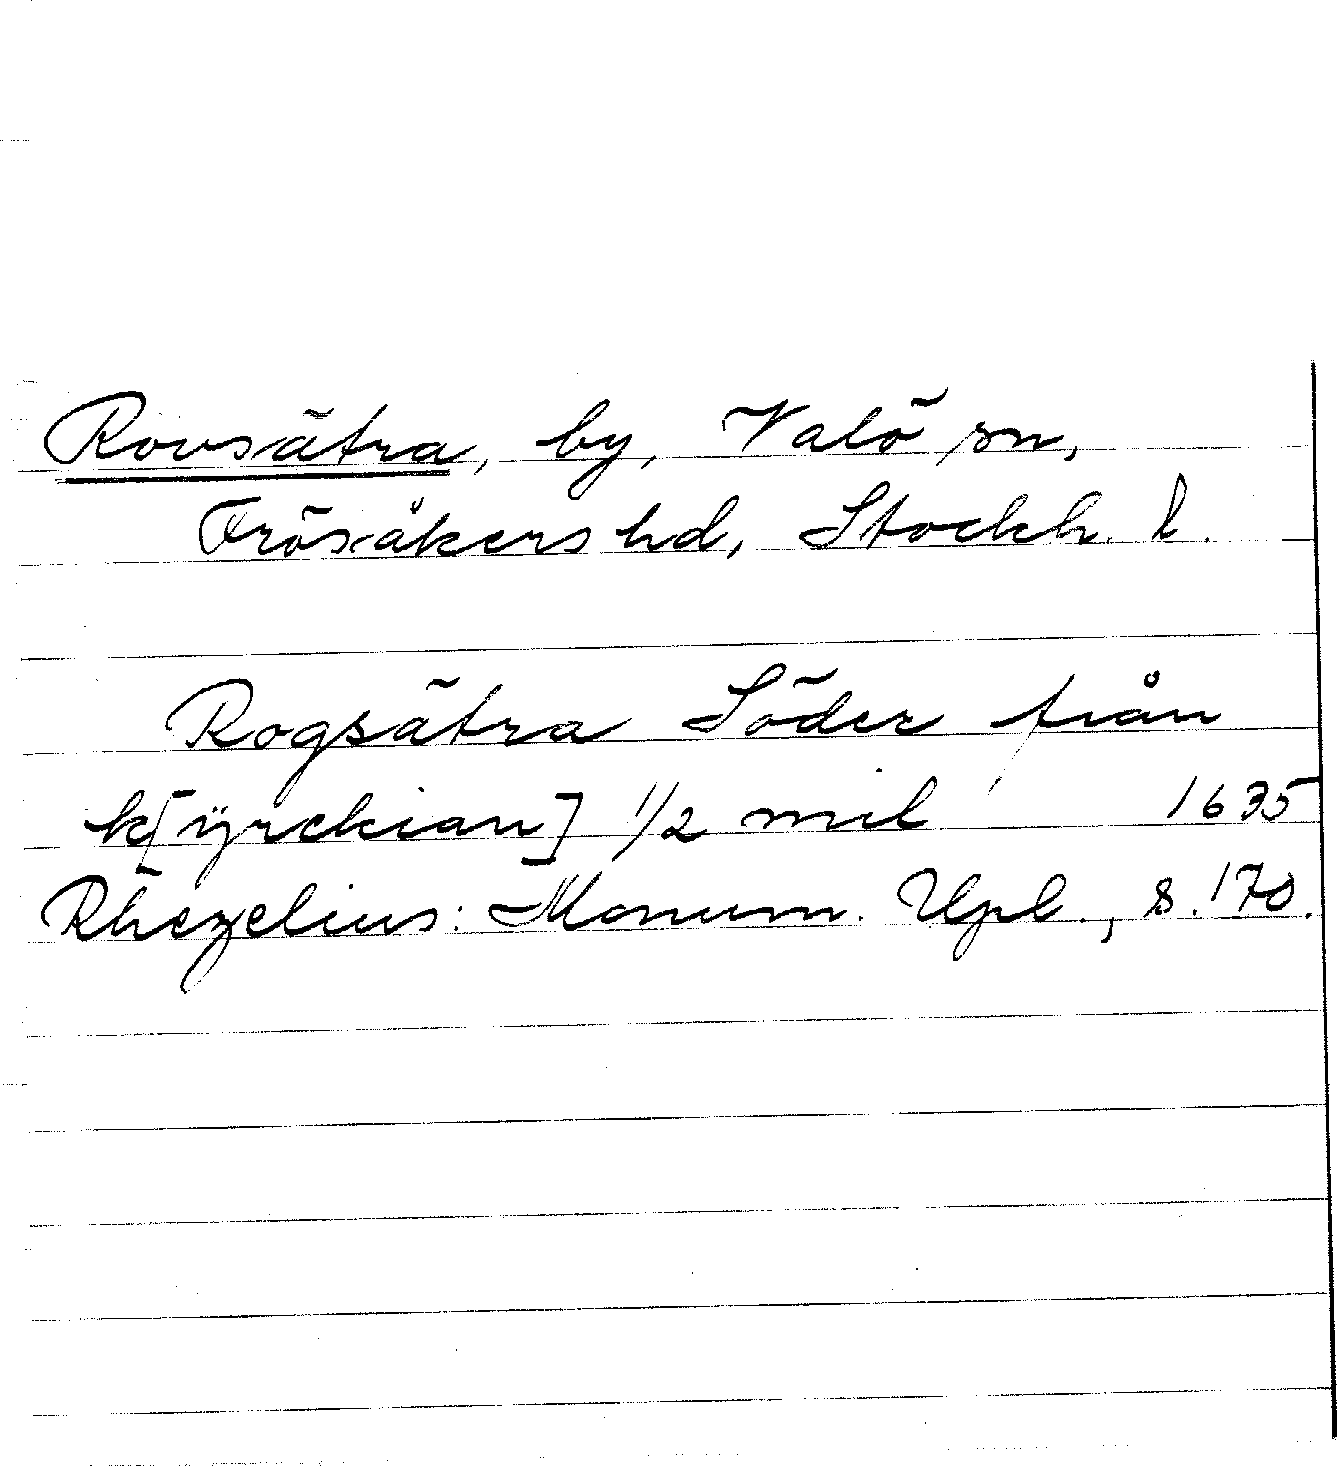 Rovsätra, by, Valö sn,
Frösåkers hd, Stockh. l.
Rogsätra Söder från
k[ÿrckian] 1/2 mil 1635
Rhezelius: Monum. Upl., s. 170.